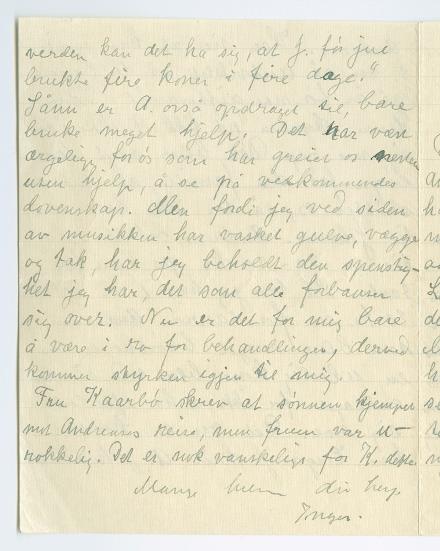 verden kan det ha sig, at J. før jul
brukte fire koner i fire dage."
Sånn er A. også opdraget til, bare
bruke meget hjelp. Det har vært
ærgelig for os som har greiet os nesten
uten hjelp, å se på vedkommendes
dovenskap. Men fordi jeg ved siden
av musikken har vasket gulve, vægge
og tak, har jeg beholdt den spenstig-
het jeg har, det som alle forbauser
sig over. Nu er det for mig bare
å være i ro for behandlingen, derved
kommer styrken igjen til mig.
Fru Kaarbø skrev at sønnen kjemper
mot Andreas reise, men fruen var u-
rokkelig. Det er nok vanskelig for K. dette.
Mange din
Inger.